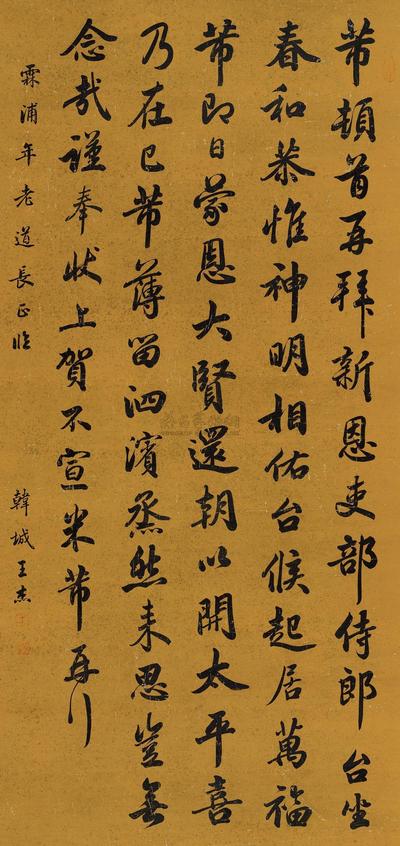 芾頓首再拜新恩吏部侍郎台坐
春和恭惟神明相佑台候起居萬福
芾即日蒙恩大賢還朝以開太平喜
乃在已芾薄留泗濱烝然来思豈無
念哉謹奉狀上賀不宣米芾再拜
霖浦年老道長正臨
韓城王杰